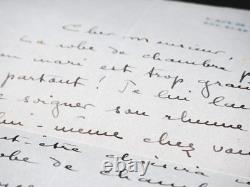 Cher monsieur,
la robe de chambre p
on mari est trop gran
partout ! Je lui
soigner son rhume
lui-même chez vou
ut-être choisira
obe de cham